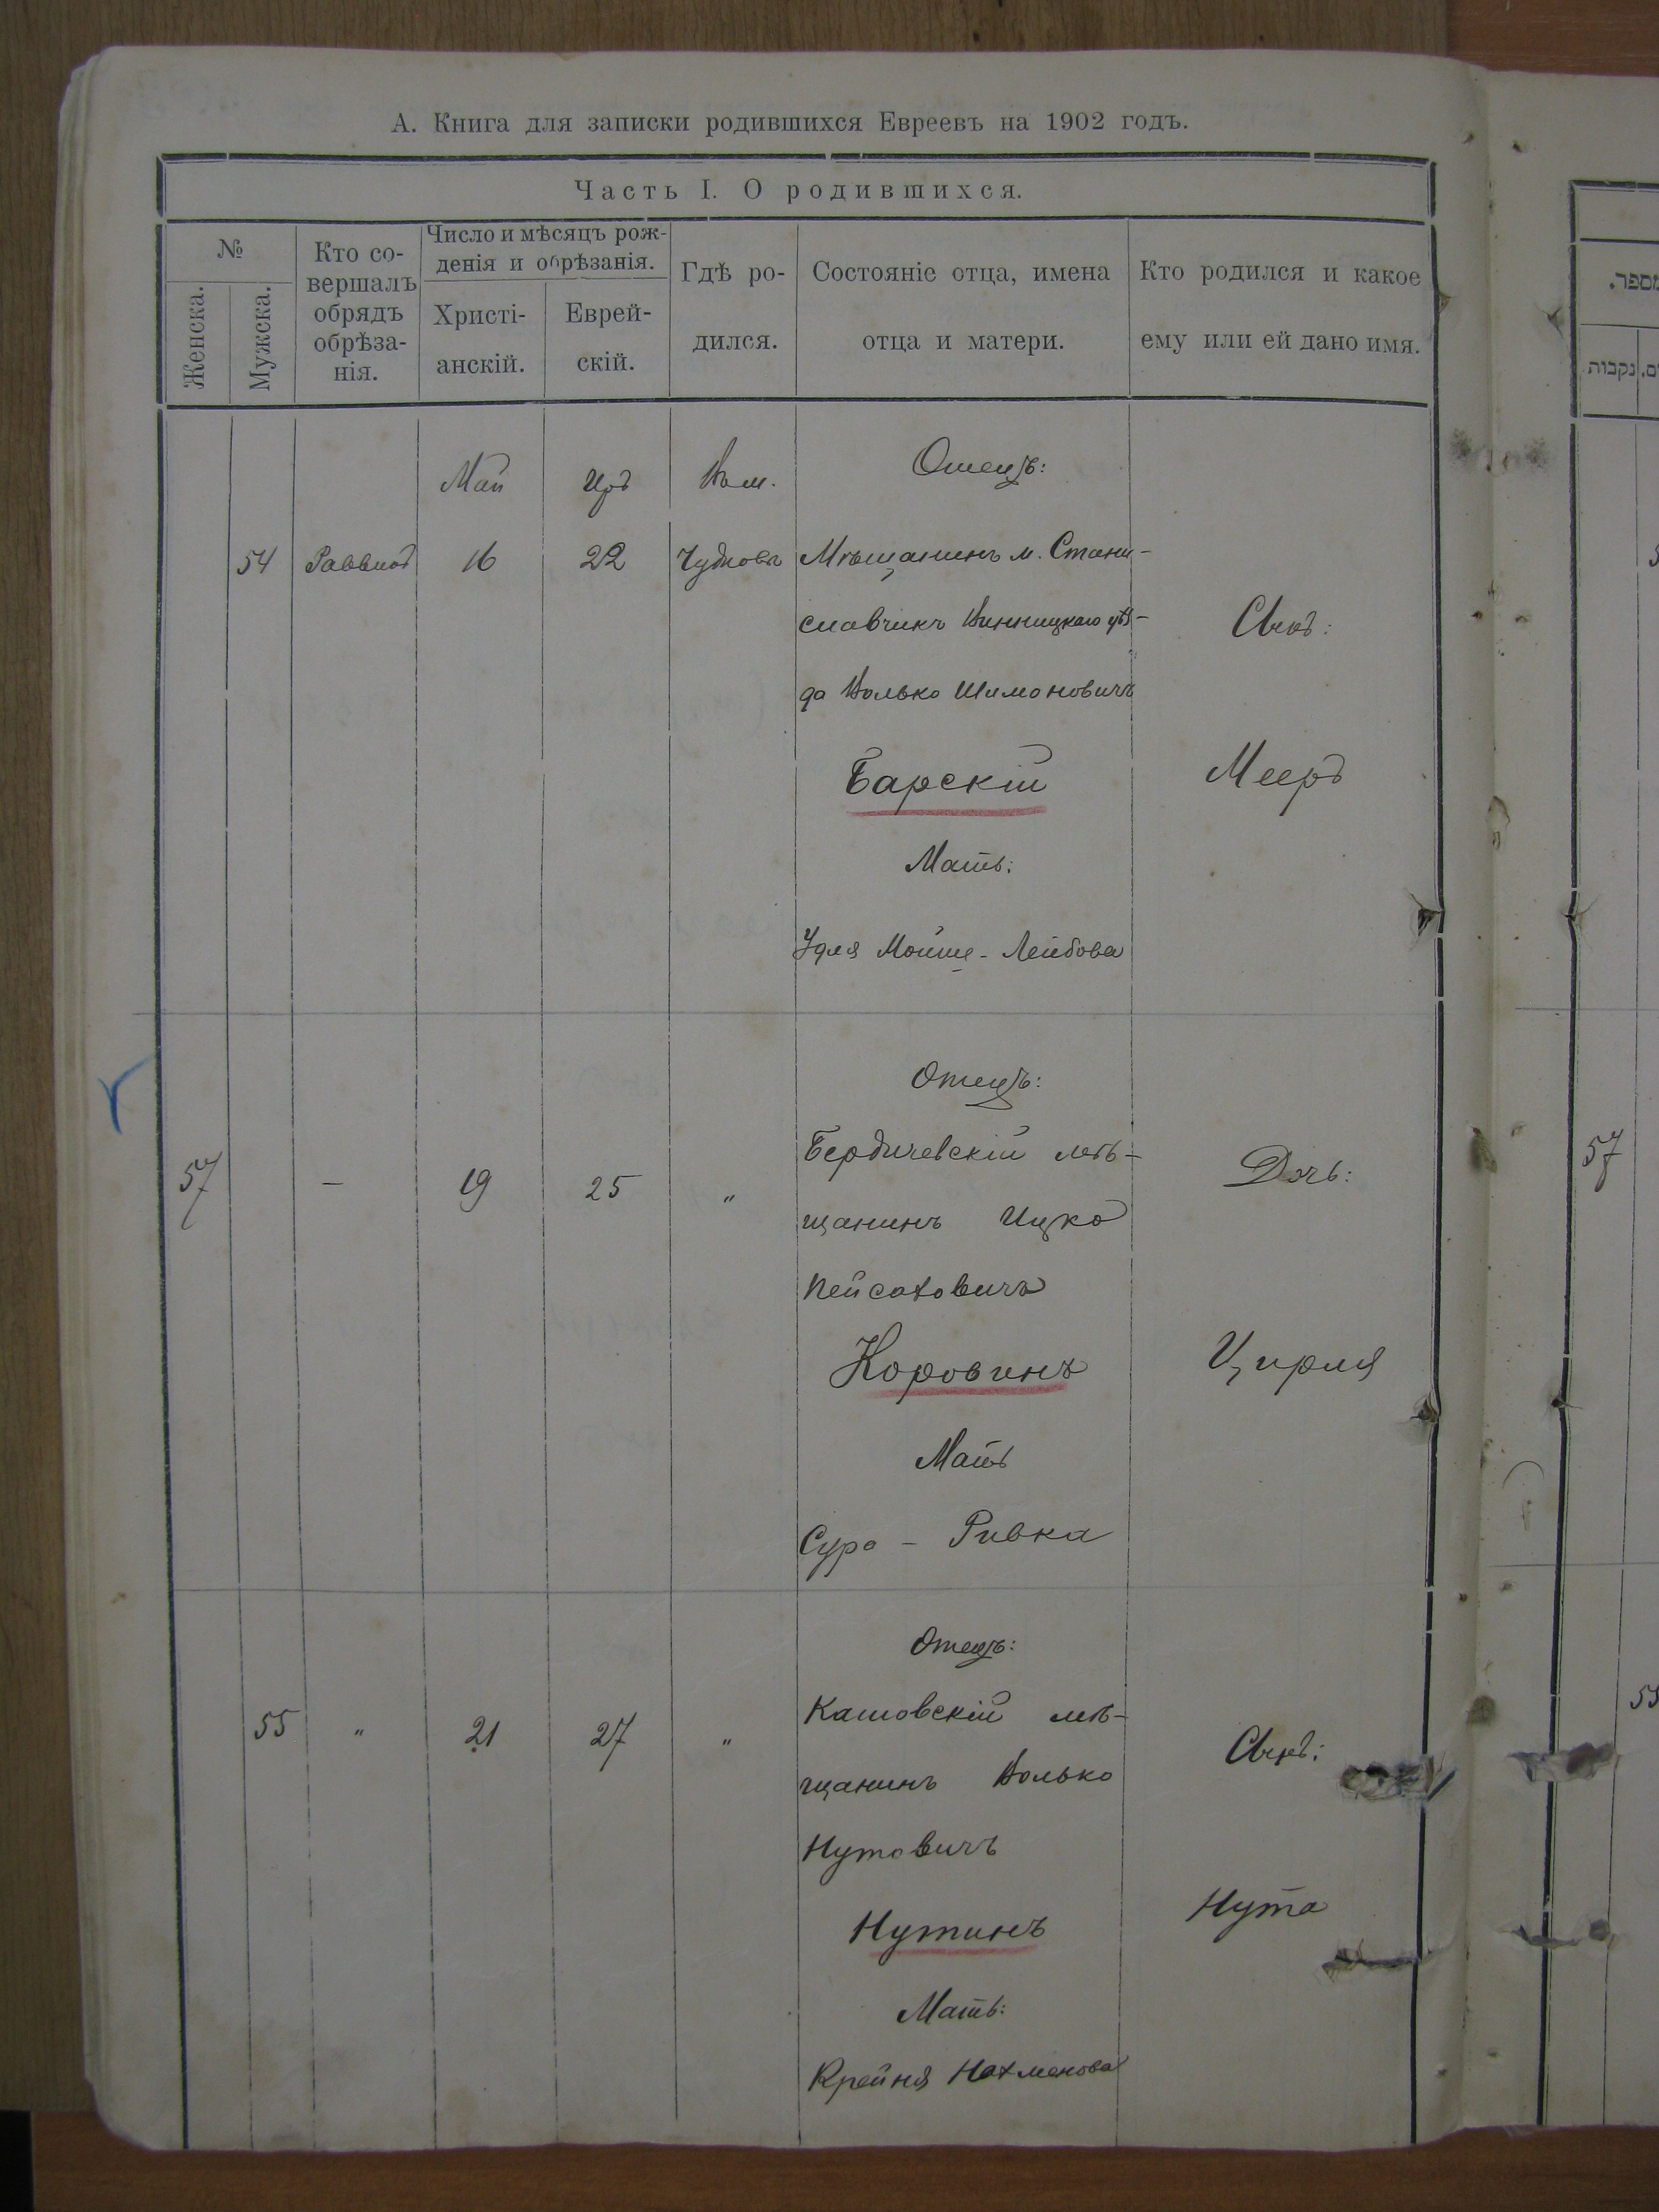 А. Книга для записки родившихся Евреевъ на 1902 годъ.
Часть I. О родившихся.
№
Женска.
Мужска.
Кто со-
вершалъ
обрядъ
обрѣза-
нія.
Число и мѣсяцъ рож-
денія и обрѣзанія.
Христі-
анскій.
Еврей-
скій.
Гдѣ ро-
дился.
Состояніе отца, имена
отца и матери.
Кто родился и какое
ему или ей дано имя.
Май Іръ Въ м. Отецъ:
54 Раввинъ 16 22 Чудновъ Мѣщанинъ м. Стани-
славчикъ Винницкаго уѣз-
да Волько Шимоновичъ
Барскій
Мать:
Удля Мойше-Лейбова
Сынъ:
Мееръ
57 — 19 25 „
Отецъ:
Бердичевскій мѣ-
щанинъ Ицко
Пейсаховичъ
Коровинъ
Мать
Сура - Ривка
Дочь:
Цирля
55 „ 21 27 „
Отецъ:
мѣ-
щанинъ Волько
Нутовичъ
Нутинъ
Мать:
Крейня Нахманова
Сынъ:
Нута
מספר.
נקבות
57
55